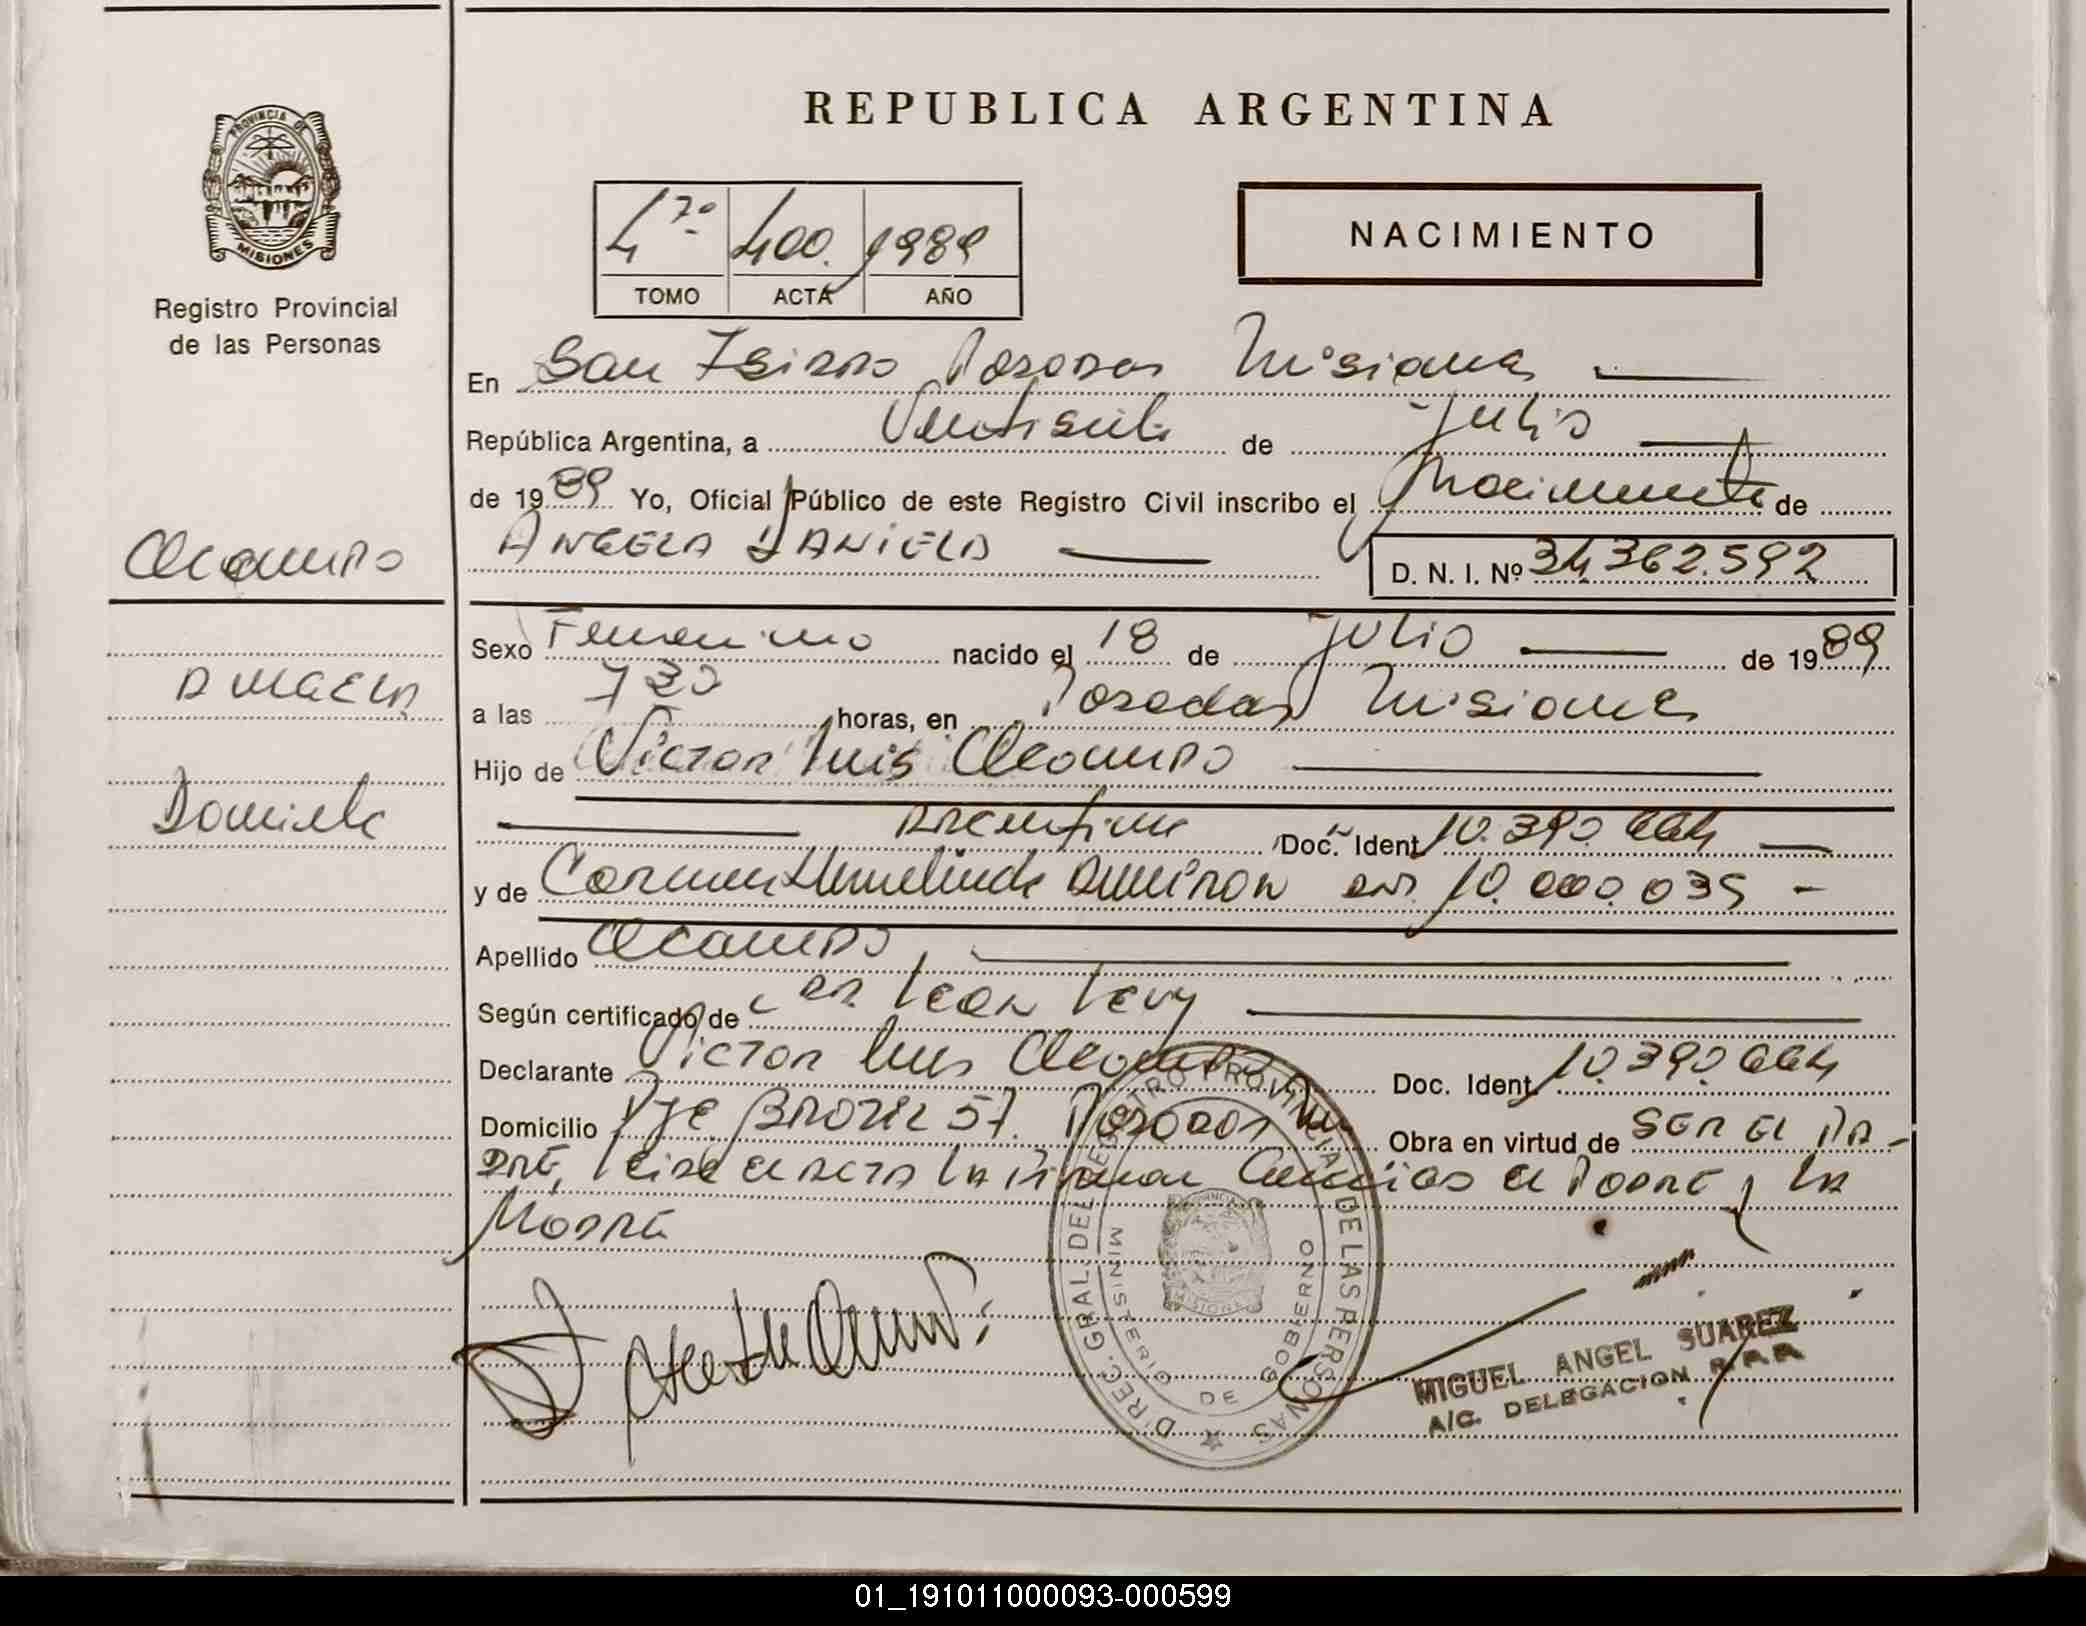 REPUBLICA ARGENTINA
PROVINCIA DE
MISIONES
Registro Provincial
de las Personas
4º 400. 1989
TOMO ACTA AÑO
NACIMIENTO
En San Isidro Posadas Misiones
República Argentina, a de Julio
de 1989 Yo, Oficial Público de este Registro Civil inscribo el Nacimiento de
Ocampo
ANGELA DANIELA
D. N. I. Nº 34.362.592
Sexo Femenino nacido el 18 de Julio de 1989
Angela
a las 7 30 horas, en Posadas Misiones
Hijo de Victor Luis Ocampo
Daniela
Argentino Doc. Ident. 10.390.664
y de Carmen Hermelinda 10.000.035 -
Apellido Ocampo
Según certificado de Leon Levy
Declarante Victor Luis Ocampo Doc. Ident. 10.390.664
Domicilio Pje. 57. Posadas Mnes Obra en virtud de SER EL PA-
DRE, Leida el acta la firman el Padre y la
Madre
DIREC. GRAL. DEL REGISTRO PROVINCIAL DE LAS PERSONAS
MINISTERIO DE GOBIERNO
PROVINCIA DE
MISIONES
MIGUEL ANGEL SUAREZ
A/C. DELEGACION
01_191011000093-000599